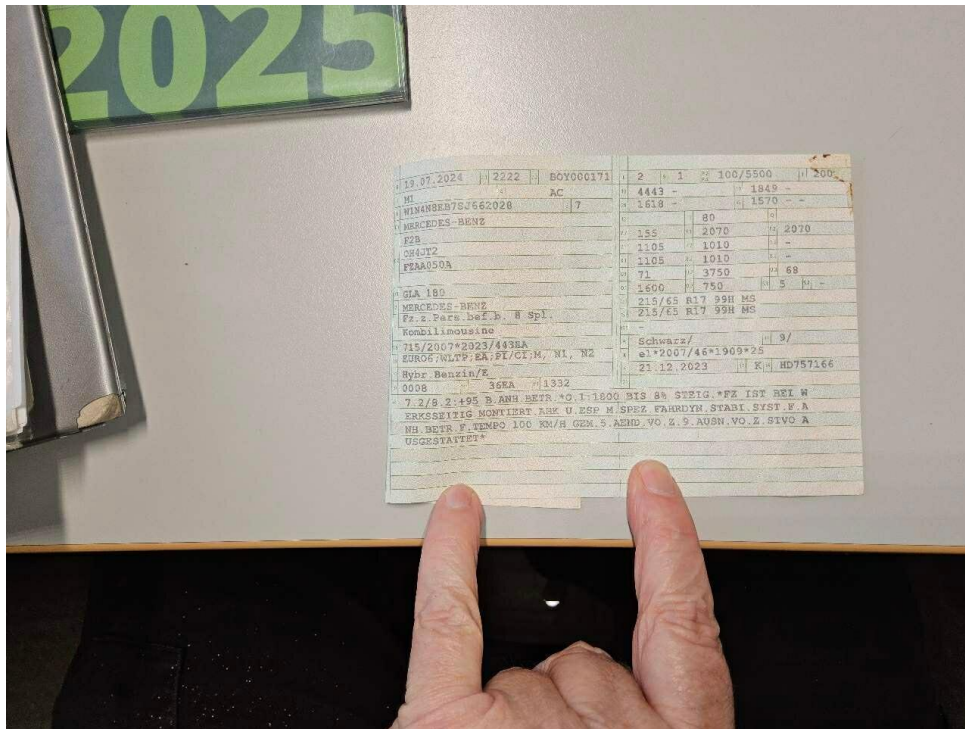 2025
19.07.2024 2222 BOY000171
M1 AC
W1N4N8EB7SJ662028 7
MERCEDES-BENZ
F2B
OH4JT2
FZAA050A
GLA 180
MERCEDES-BENZ
Fz.z.Pers.bef.b. 8 Spl.
Kombilimousine
715/2007*2023/443EA
EURO6;WLTP;EA;PI/CI;M, N1, N2
Hybr.Benzin/E
0008 36EA 1332
2 1 100/5500 200
4443 - 1849 -
1618 - 1570 - -
80
155 2070 2070
1105 1010 -
1105 1010 -
71 3750 68
1600 750 5 -
215/65 R17 99H MS
215/65 R17 99H MS
-
Schwarz/ 9/
e1*2007/46*1909*25
21.12.2023 K HD757166
7.2/8.2:+95 B.ANH.BETR.*O.1:1800 BIS 8% STEIG.*FZ IST BEI W
ERKSSEITIG MONTIERT.AHK U.ESP M.SPEZ.FAHRDYN.STABI.SYST.F.A
NH.BETR.F.TEMPO 100 KM/H GEM.5.AEND.VO.Z.9.AUSN.VO.Z.STVO A
USGESTATTET*